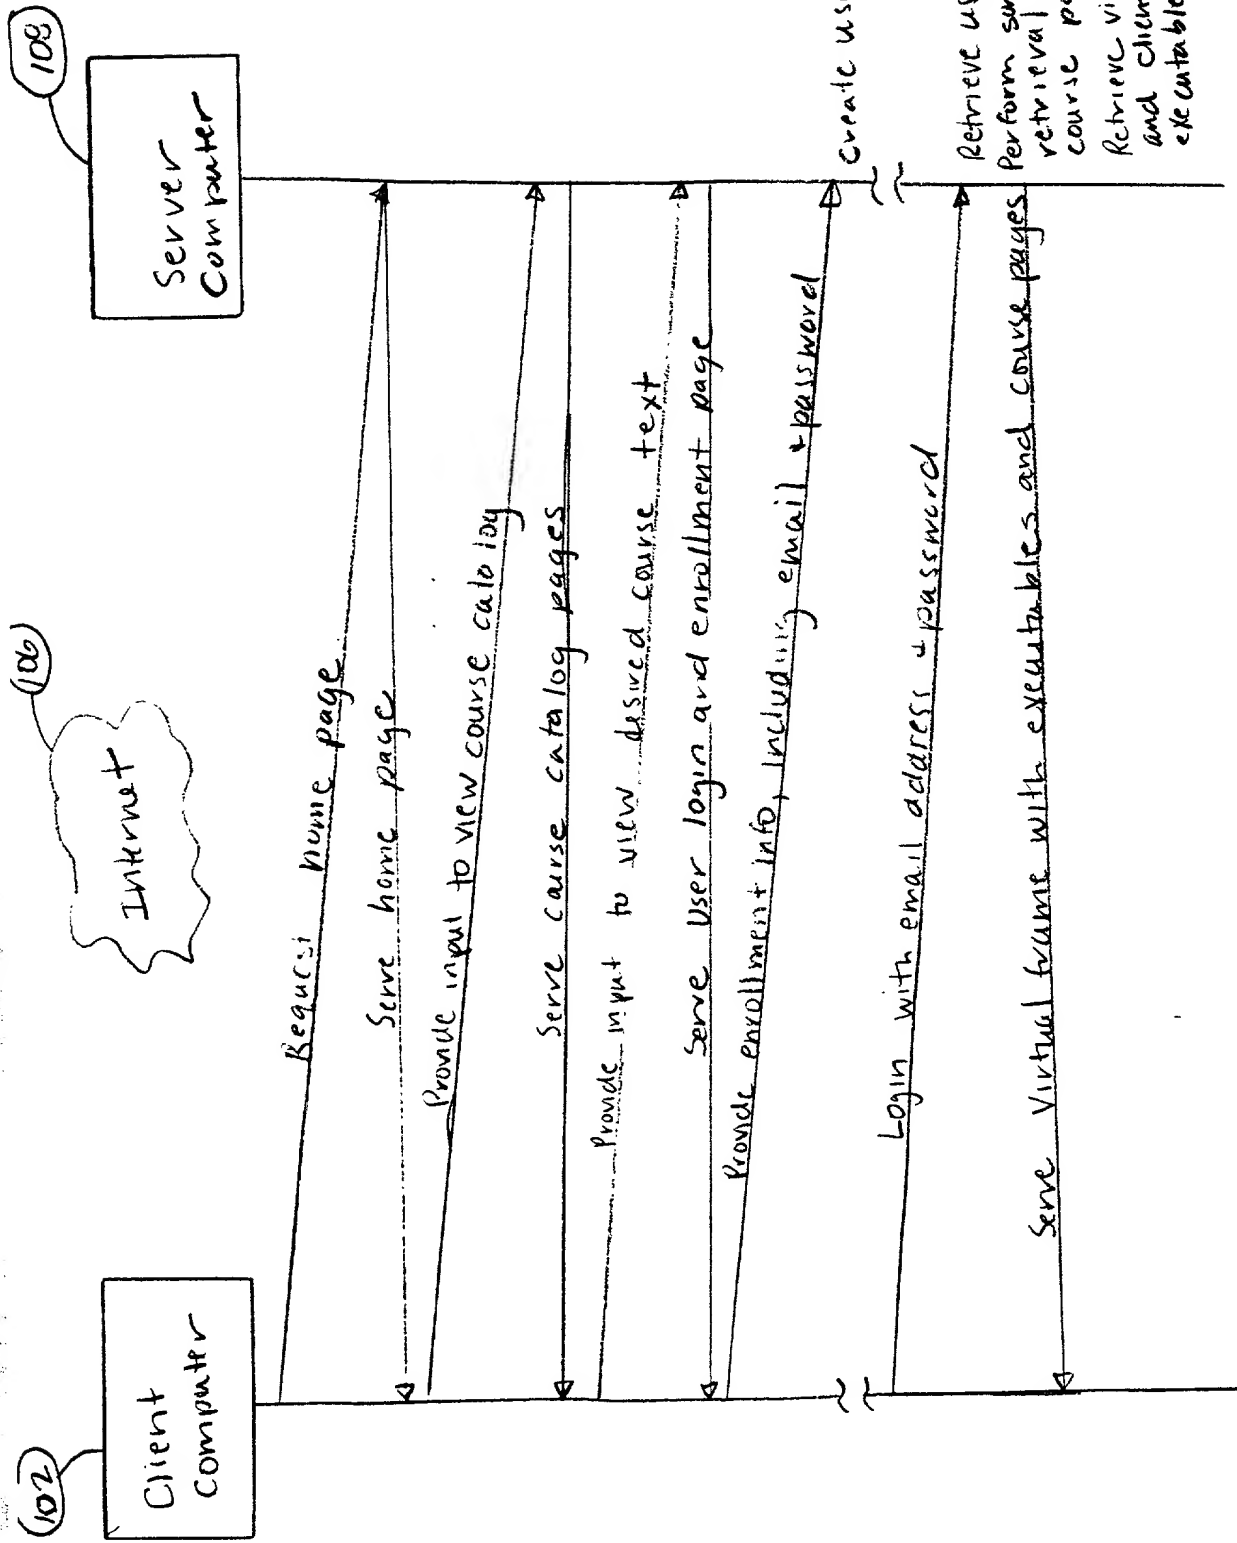 102
Client
Computer
106
Internet
108
Server
Computer
Request home page
Serve home page
Provide input to view course catalog
Serve course catalog pages
Provide input to view desired course text
Serve user login and enrollment page
Provide enrollment info, including email + password
Create
Login with email address + password
Retrieve
Perform
retrieval
course
Retrieve
and
executable
Serve Virtual frame with executables and course pages